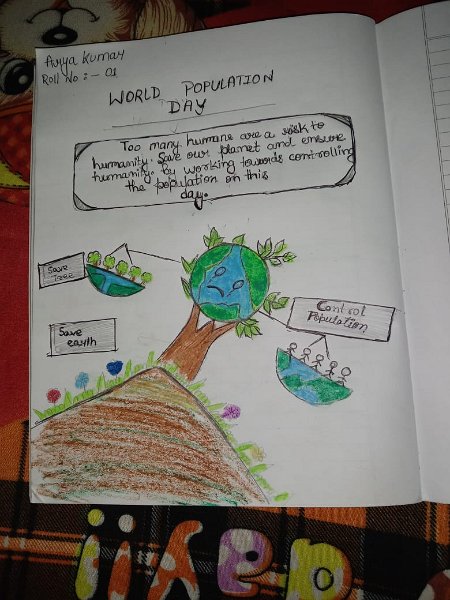 Arya Kumar
Roll No :- 01
WORLD POPULATION
DAY
Too many humans are a risk to
humanity. Save our planet and ensure
humanity. by working towards controlling
the population on this
day.
Save
Tree
Control
Population
Save
earth